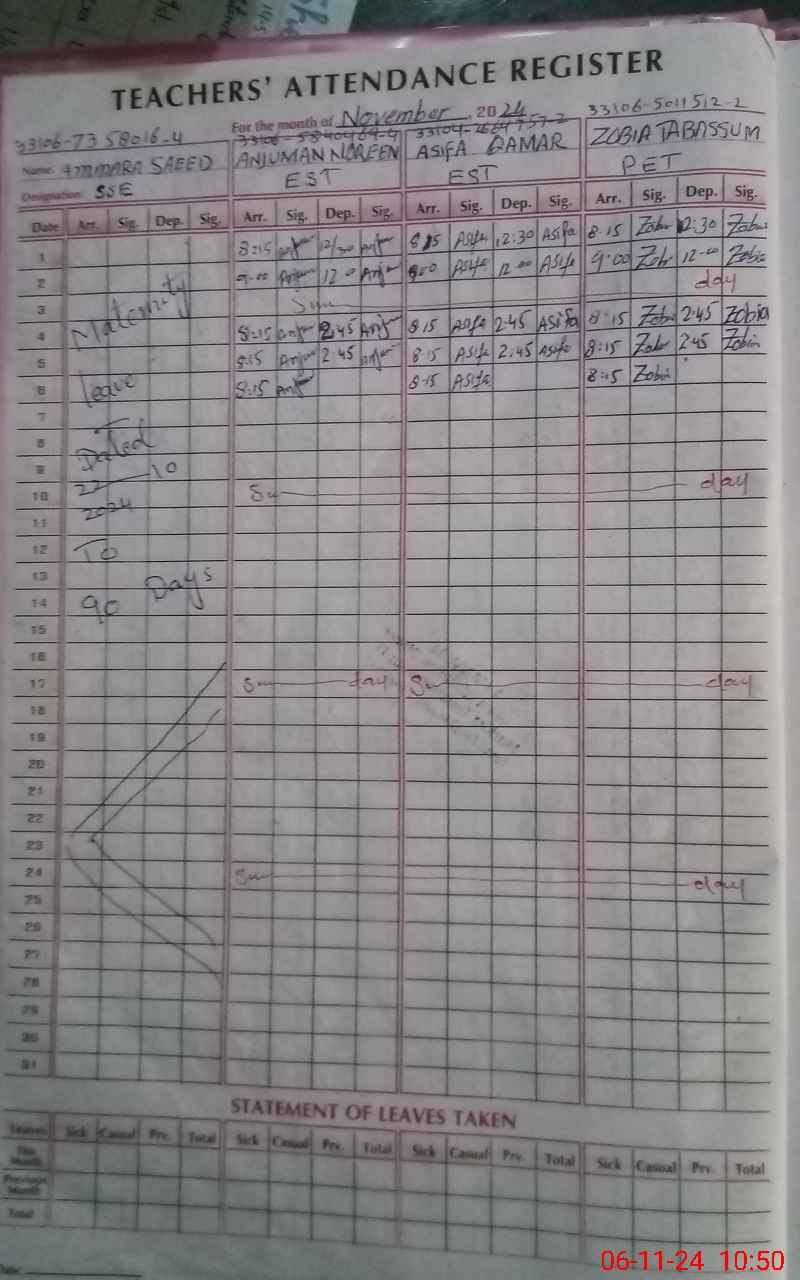 TEACHERS' ATTENDANCE REGISTER
For the month of November 2024
33106-7358016-4 33104-2664757-2 33106-5011512-2
Name: AMMARA SAEED ANJUMAN NOREEN ASIFA QAMAR ZOBIA TABASSUM
Designation: SSE EST EST PET
Date Arr. Sig. Dep. Sig. Arr. Sig. Dep. Sig. Arr. Sig. Dep. Sig. Arr. Sig. Dep. Sig.
1 8:15 12/30 8:15 Asifa 12:30 Asifa 8:15 Zobia 12:30 Zobia
2 9:00 Anjum 12:0 Anjum 9:00 Asifa 12:00 Asifa 9:00 Zobia 12-00 Zobia
3 Sun day
4 Maternity 8:15 2:45 Anjum 8:15 Asifa 2:45 Asifa 8:15 Zobia 2:45 Zobia
5 8:15 Anjum 2:45 Anjum 8:15 Asifa 2:45 Asifa 8:15 Zobia 2:45 Zobia
6 leave 8:15 Anjum 8:15 Asifa 8:15 Zobia
7
8 Dated
9 22-10
10 Su day
11 2024
12 To
13
14 90 Days
15
16
17 Sun day Su day
18
19
20
21
22
23
24 Sun day
25
26
27
28
29
30
31
STATEMENT OF LEAVES TAKEN
Leaves Sick Casual Prv. Total Sick Casual Prv. Total Sick Casual Prv. Total Sick Casual Prv. Total
This Month
Previous Month
Total
06-11-24 10:50